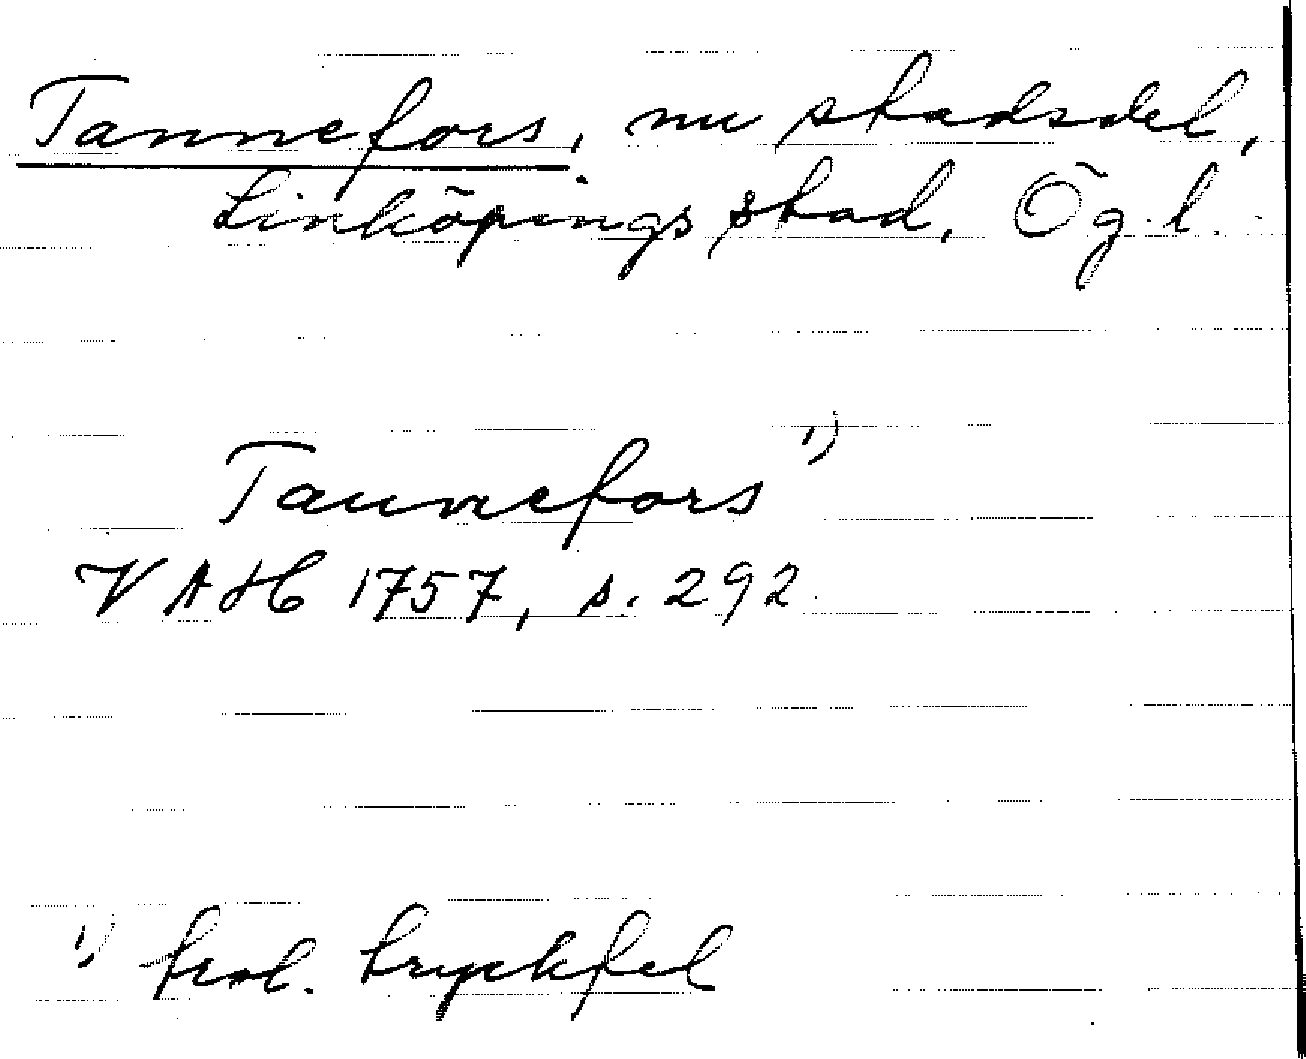 Tannefors, nu stadsdel,
Linköpings stad, Ög.l.
Taunefors 1)
VAH 1757, s. 292
1) trol. tryckfel